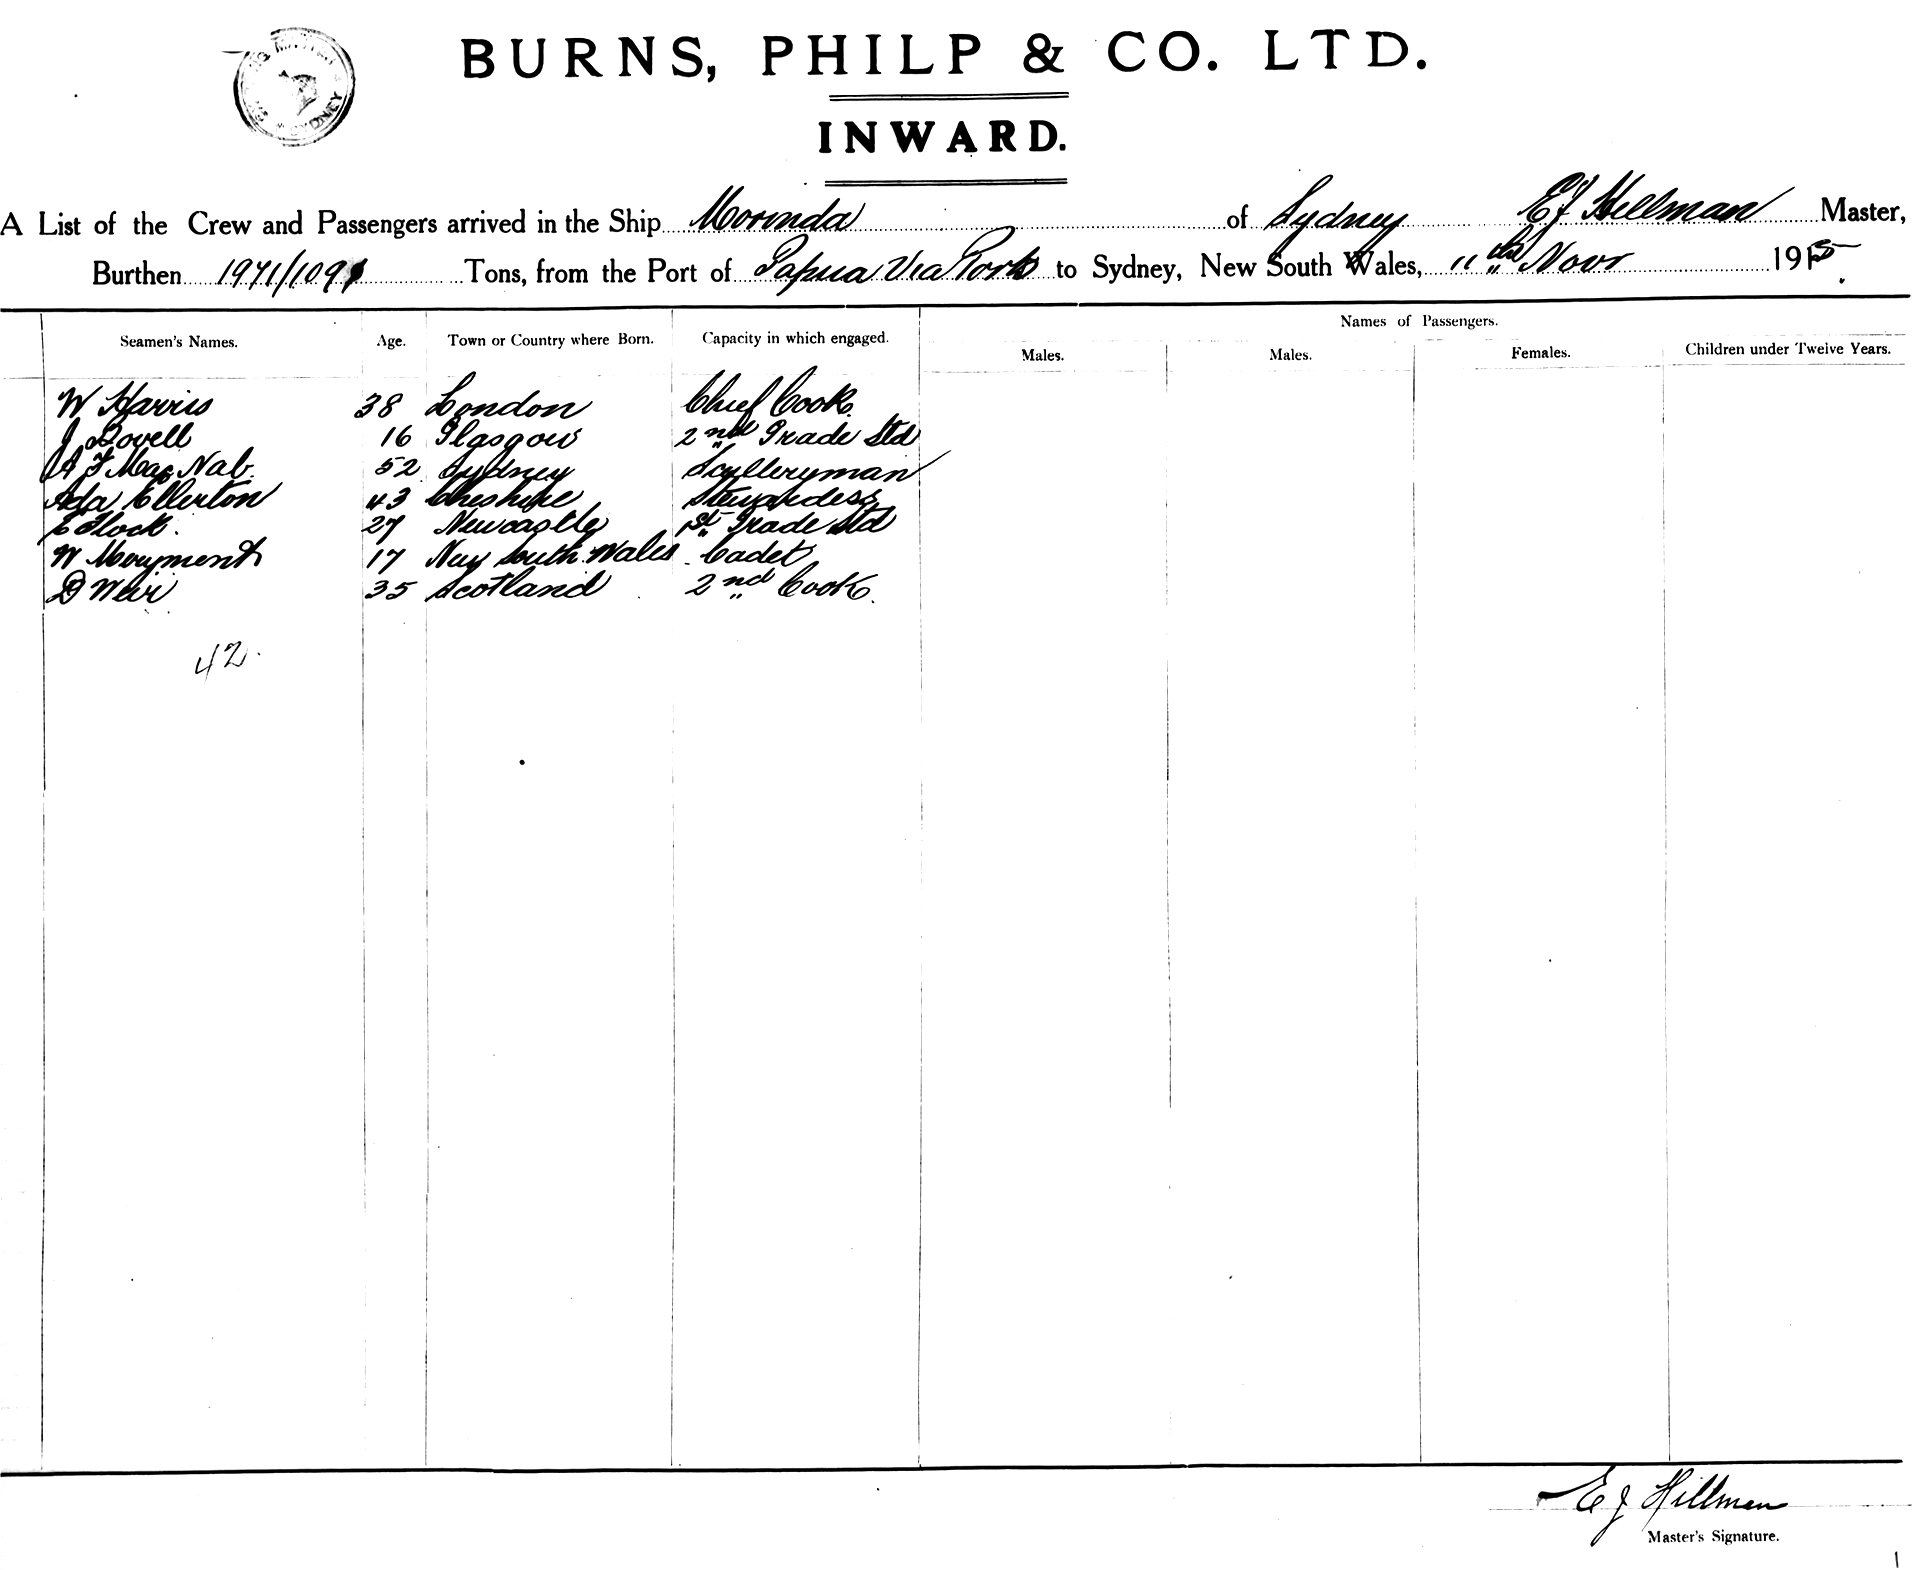 BURNS, PHILP & CO. LTD.
INWARD.
SYDNEY
A List of the Crew and Passengers arrived in the Ship Morinda of Sydney EJ Hillman Master,
Burthen 1971/1091 Tons, from the Port of Papua Via Ports to Sydney, New South Wales, 11th Novr 1915
Names of Passengers.
Seamen's Names. Age. Town or Country where Born. Capacity in which engaged. Males. Males. Females. Children under Twelve Years.
W Harris 38 London Chief Cook.
J Lovell 16 Glasgow 2nd Grade Std
A F MacNab. 52 Sydney Scylleryman
Ada Ellerton 43 Cheshire Stewardess
E Flock. 27 Newcastle 1st Grade Std
W Moryment 17 New South Wales Cadet
D Weir 35 Scotland 2nd Cook.
42.
E J Hillman
Master's Signature.
1